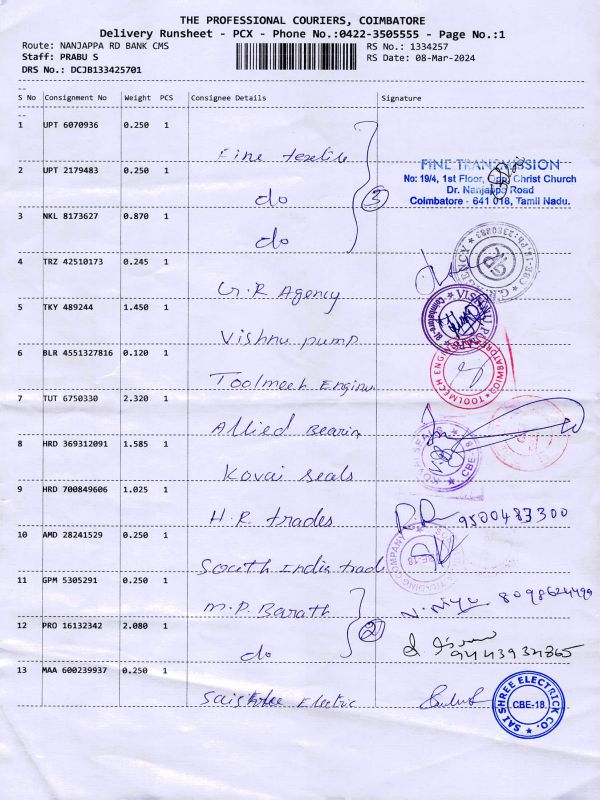 THE PROFESSIONAL COURIERS, COIMBATORE
Delivery Runsheet - PCX - Phone No.:0422-3505555 - Page No.:1
Route: NANJAPPA RD BANK CMS
RS No.: 1334257
Staff: PRABU S
RS Date: 08-Mar-2024
DRS No.: DCJB133425701
S No Consignment No Weight PCS Consignee Details Signature
1 UPT 6070936 0.250 1
Fine textile
2 UPT 2179483 0.250 1
do
3
FINE TRANSMISSION
No: 19/4, 1st Floor, Opp. Christ Church
Dr. Nanjappa Road
Coimbatore - 641 018, Tamil Nadu.
3 NKL 8173627 0.870 1
do
4 TRZ 42510173 0.245 1
G.R Agency
G.R. AGENCY
5 TKY 489244 1.450 1
Vishnu pump
VISHNU PUMPS
6 BLR 4551327816 0.120 1
Toolmech Engine
TOOLMECH ENGINEERS
COIMBATORE
7 TUT 6750330 2.320 1
Allied Bearin
8 HRD 369312091 1.585 1
Kovai Seals
KOVAI SEALS
CBE-18
9 HRD 700849606 1.025 1
H.R trades
9500483300
10 AMD 28241529 0.250 1
South India trad
TRADING COMPANY
11 GPM 5305291 0.250 1
M.P. Barath
8098624499
12 PRO 16132342 2.080 1
do
2
9443934865
13 MAA 600239937 0.250 1
Saishree Electric
SAI SHREE ELECTRIC CO.
CBE-18.